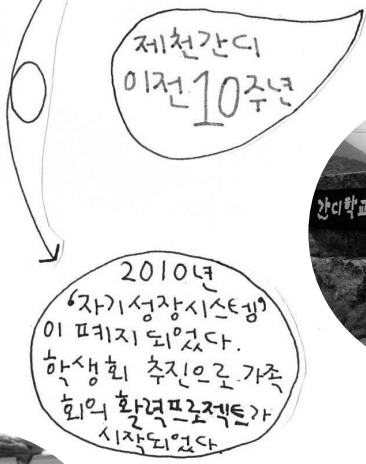 제천간디
이전10주년
간디학교
2010년
'자기성장시스템'
이 폐지 되었다.
학생회 추진으로 가족
회의 활력프로젝트가
시작되었다.